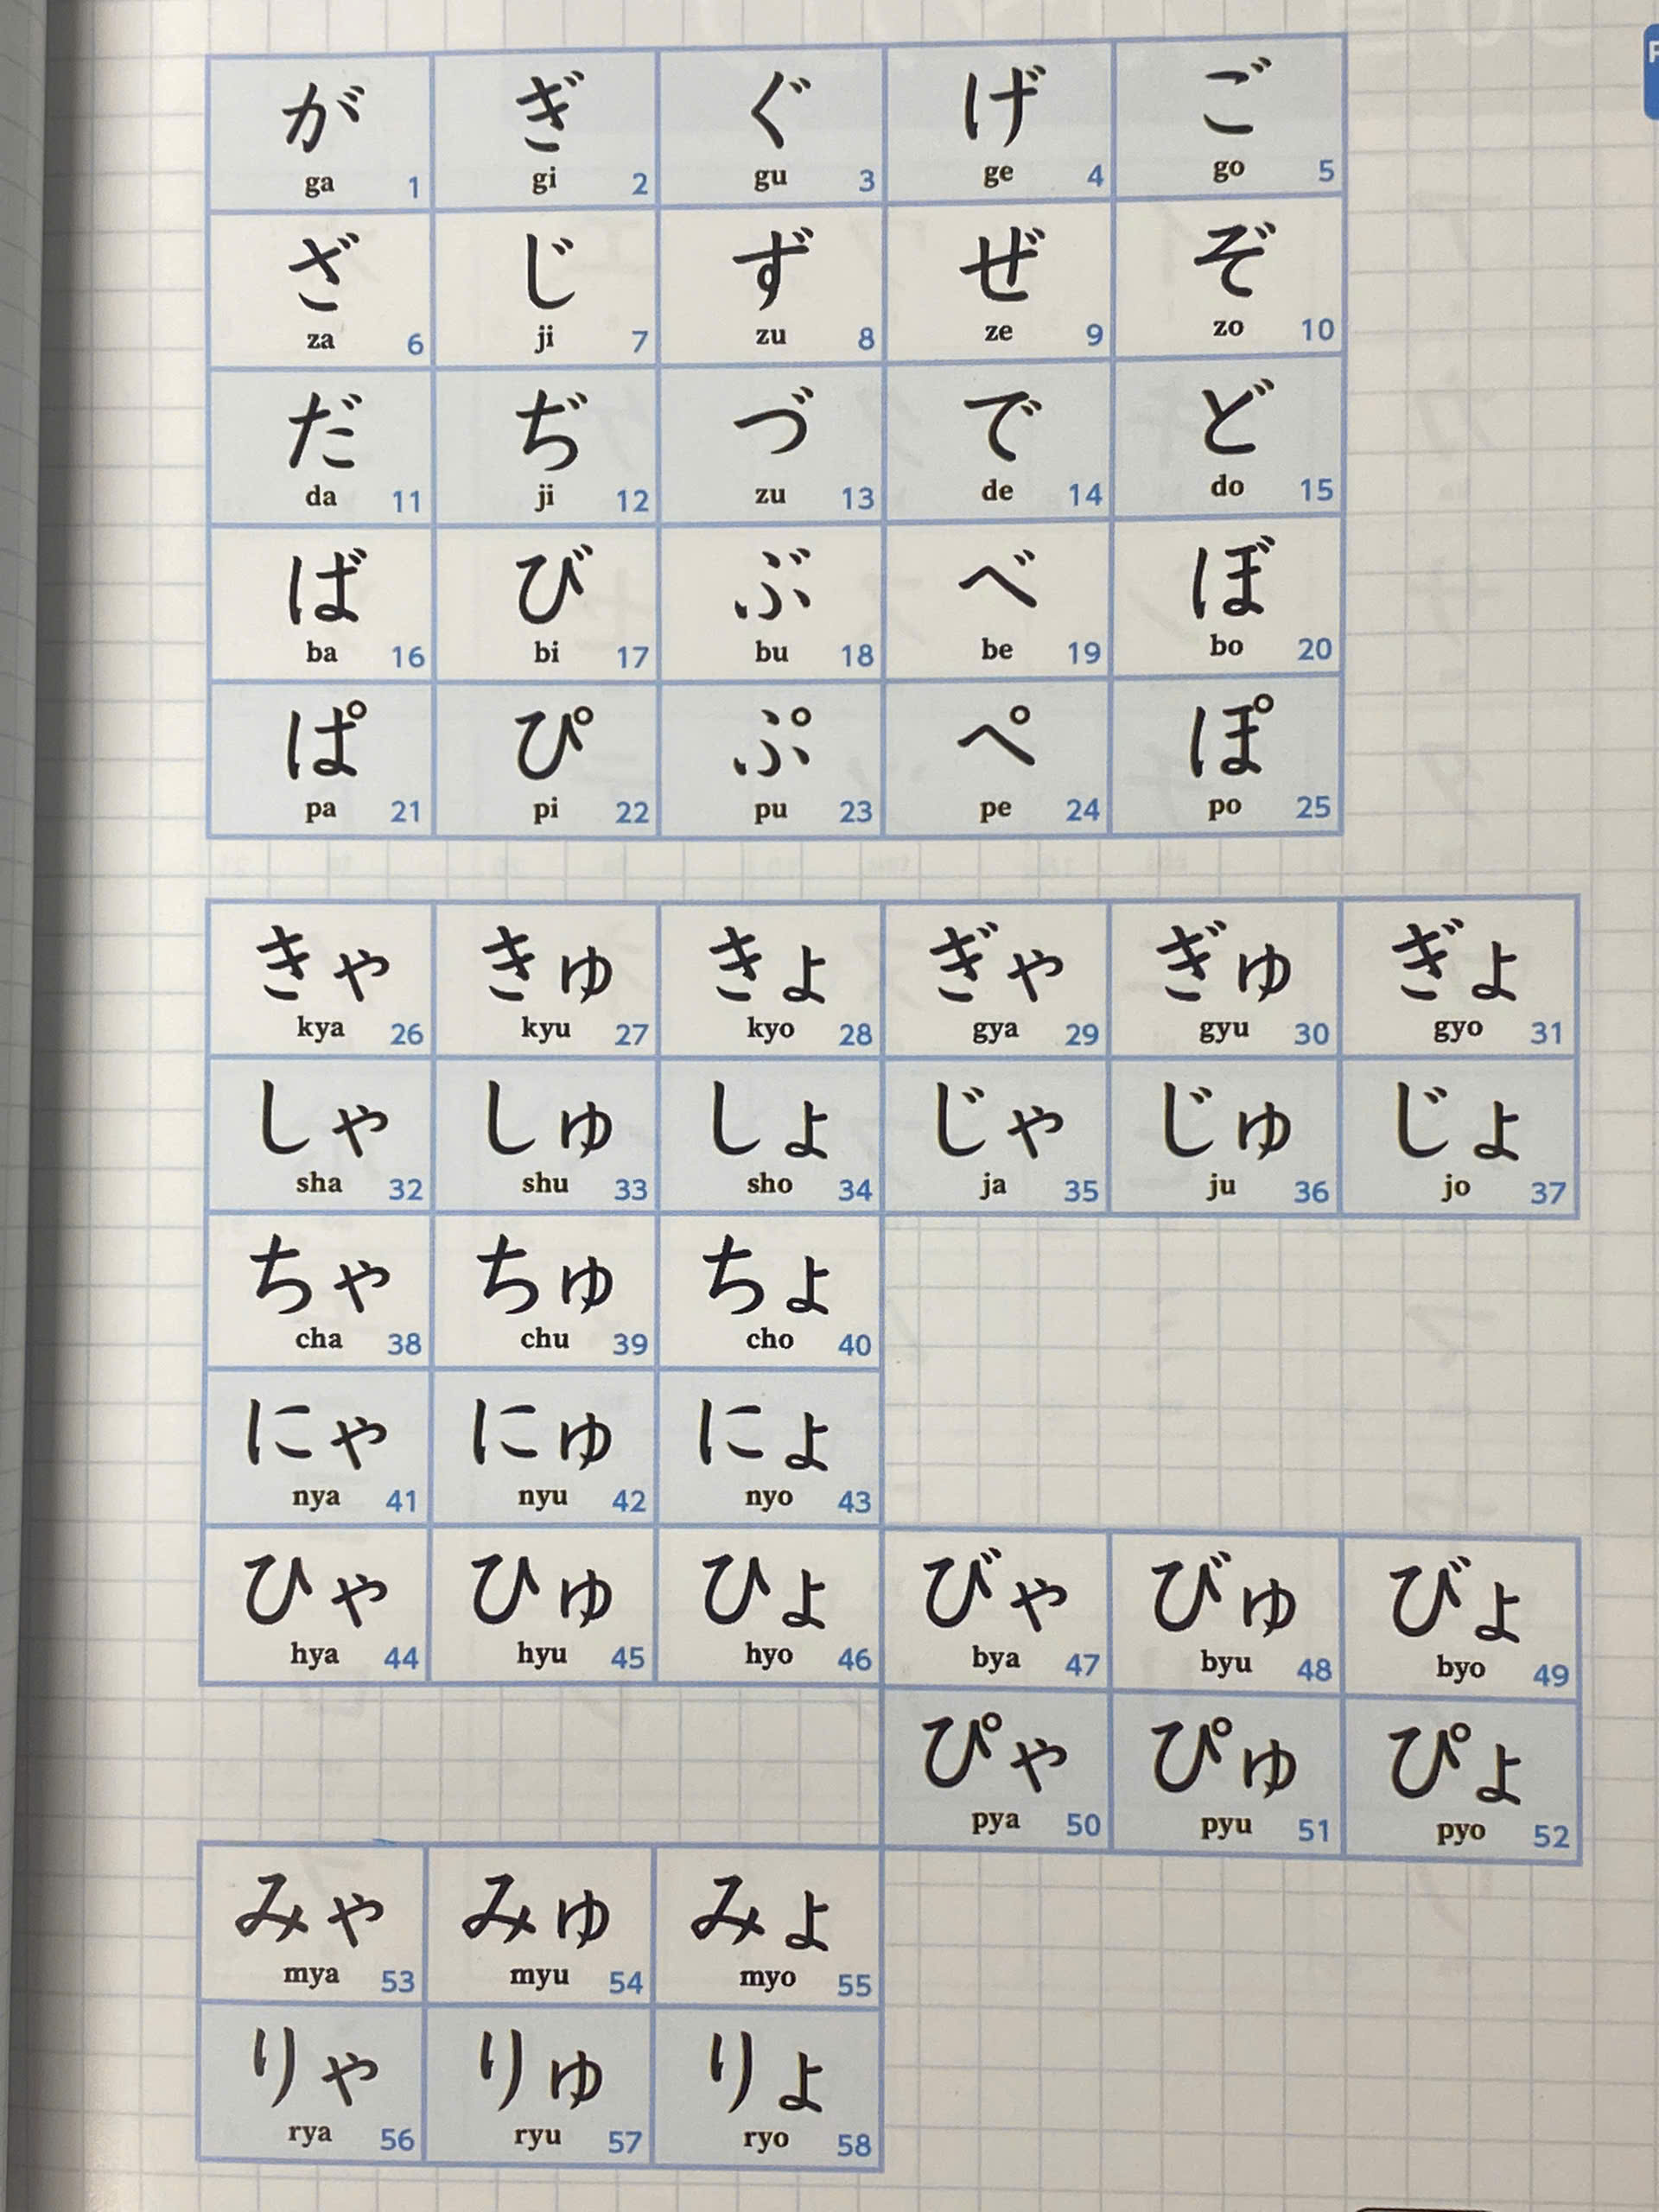 が ぎ ぐ げ ご
ga 1 gi 2 gu 3 ge 4 go 5
ざ じ ず ぜ ぞ
za 6 ji 7 zu 8 ze 9 zo 10
だ ぢ づ で ど
da 11 ji 12 zu 13 de 14 do 15
ば び ぶ べ ぼ
ba 16 bi 17 bu 18 be 19 bo 20
ぱ ぴ ぷ ぺ ぽ
pa 21 pi 22 pu 23 pe 24 po 25
きゃ きゅ きょ ぎゃ ぎゅ ぎょ
kya 26 kyu 27 kyo 28 gya 29 gyu 30 gyo 31
しゃ しゅ しょ じゃ じゅ じょ
sha 32 shu 33 sho 34 ja 35 ju 36 jo 37
ちゃ ちゅ ちょ
cha 38 chu 39 cho 40
にゃ にゅ にょ
nya 41 nyu 42 nyo 43
ひゃ ひゅ ひょ びゃ びゅ びょ
hya 44 hyu 45 hyo 46 bya 47 byu 48 byo 49
ぴゃ ぴゅ ぴょ
pya 50 pyu 51 pyo 52
みゃ みゅ みょ
mya 53 myu 54 myo 55
りゃ りゅ りょ
rya 56 ryu 57 ryo 58